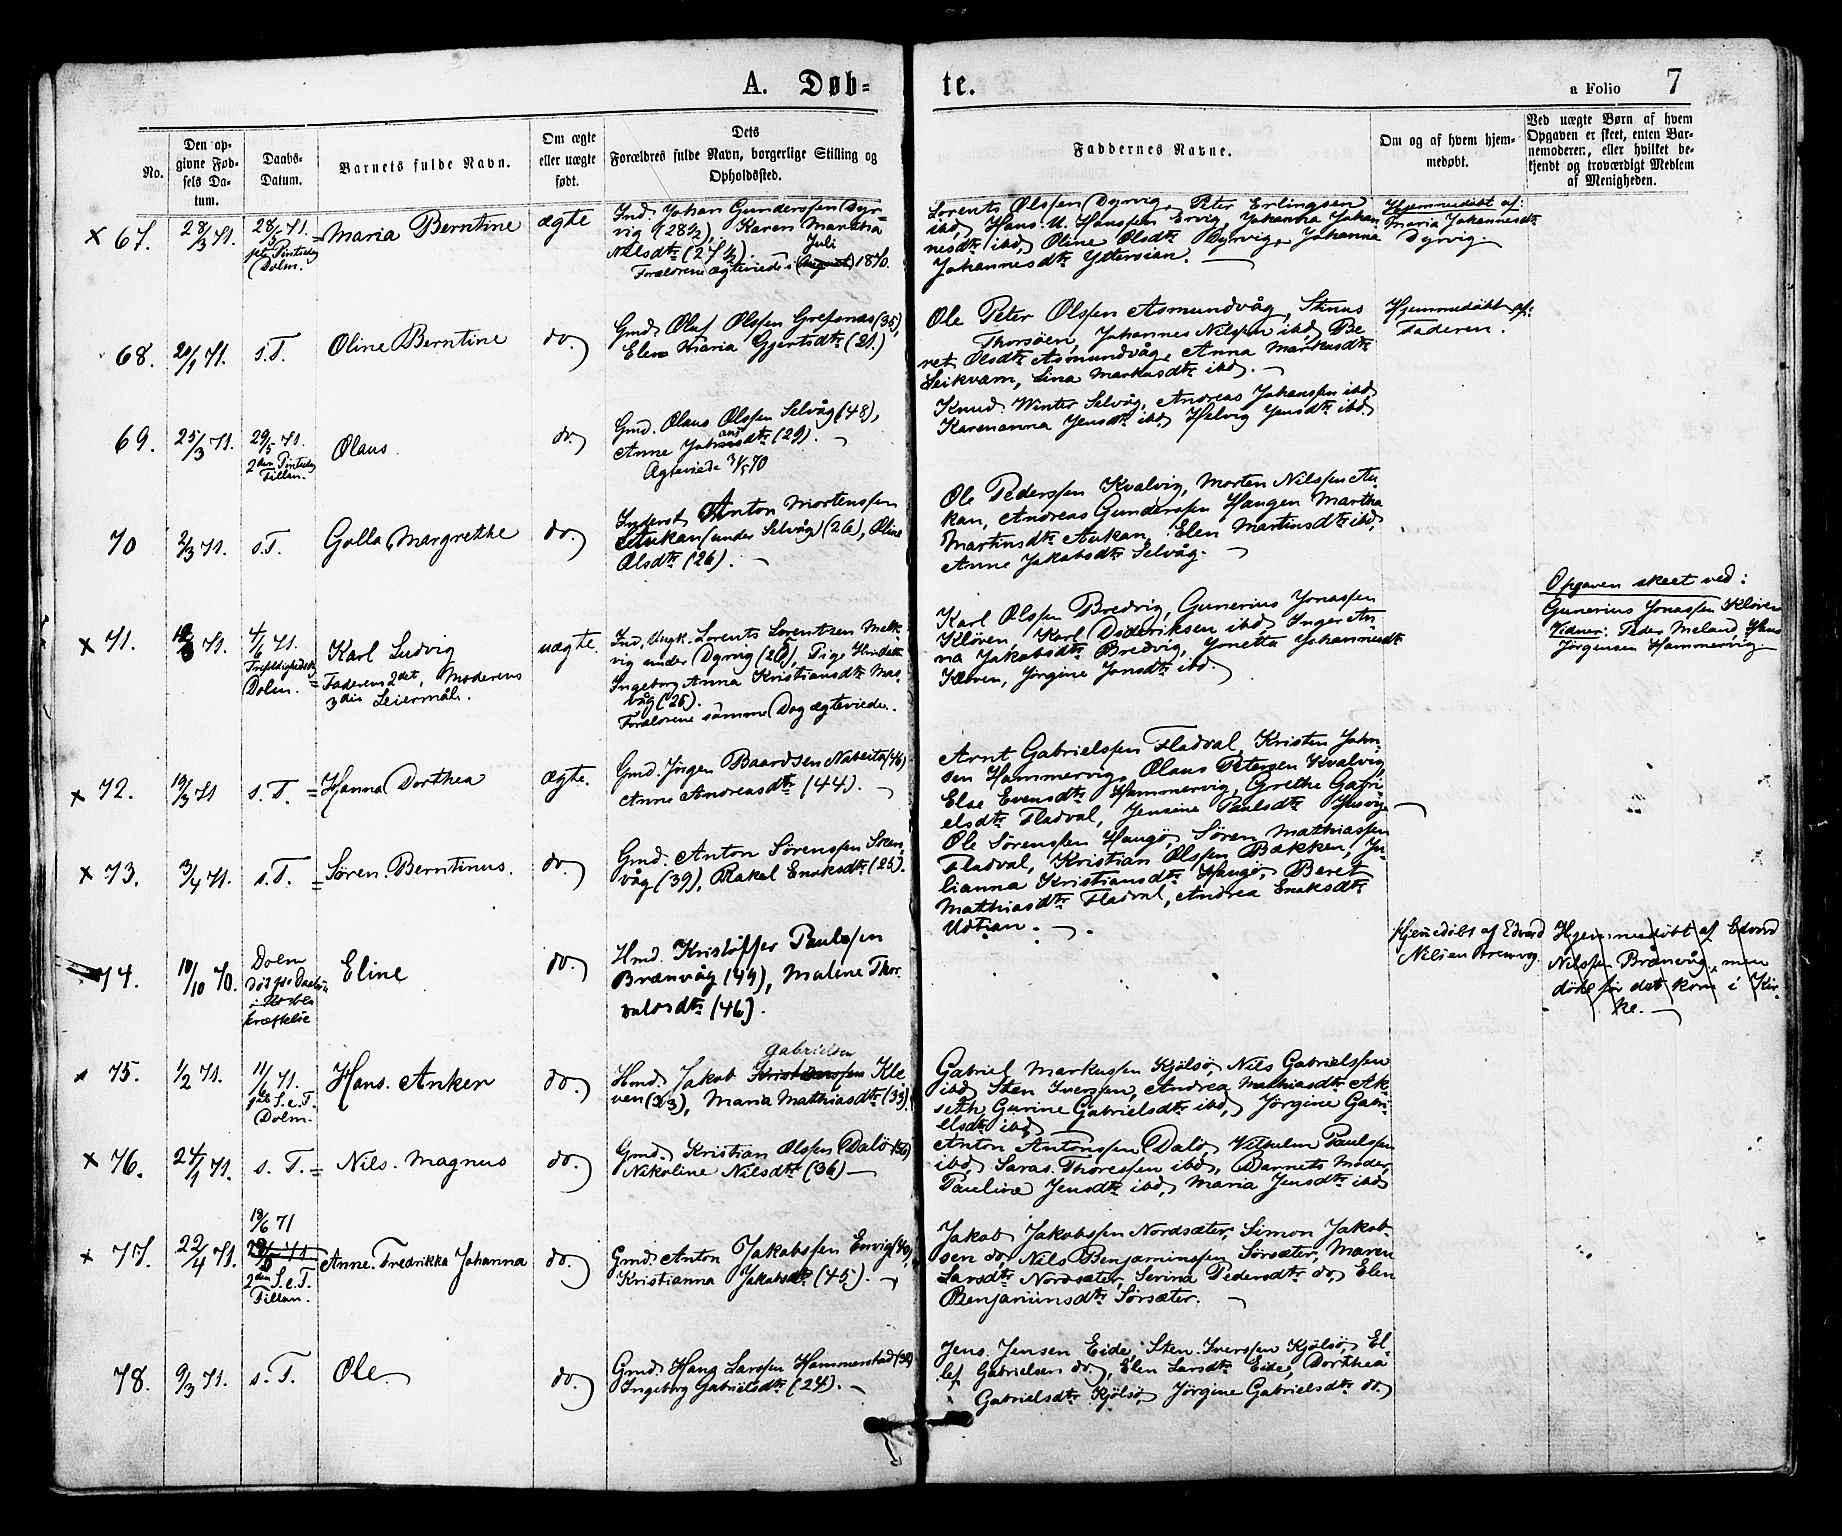 A. Døb=
te.
a Folio 7
No.
Den op-
givne Fød-
sels Da-
tum.
Daabs-
Datum.
Barnets fulde Navn.
Om ægte
eller uægte
født.
Dets
Forældres fulde Navn, borgerlige Stilling og
Opholdssted.
Faddernes Navne.
Om og af hvem hjem-
medøbt.
Ved uægte Børn af hvem
Opgaven er skeet, enten Bar-
nemoderen, eller hvilket be-
kjendt og troværdigt Medlem
af Menigheden.
× 67. 28/3 71.
28/5 71.
Dolm.
Maria Berntine
ægte
Ind. Johan Gunderssen Dyr-
vig (28½), Karen Martha
Nilsdtr (27½). Juli
Forældrene ægteviede i (August) 1870.
Lorents Olssen Dyrvig, Peter Erlingsen
ibd, Hans U. Hanssen Ervig, Johanna Johan-
nesdtr ibd, Oline Olsdtr Dyrvig, Johanna
Johannesdtr Yttersian.
Hjemmedøbt af:
Maria Johannesdtr
Dyrvig.
68. 20/1 71. s.T.
Oline Berntine
do.
Gmd. Oluf Olssen Grefsnæs (35),
Elen Maria Gjertsdtr (21.)
Ole Peter Olssen Asmundvåg, Stinus
Thorsøen, Johannes Nilssen ibd, Be-
ret Olsdtr Asmundvåg, Anna Markusdtr
Leikvam, Lina Markusdtr ibd.
Hjemmedøbt af:
Faderen.
69. 25/3 71.
29/5 71.
2den Pintsedag
Fillan.
Olaus
do.
Gmd. Olaus Olssen Selvåg (48),
Anne Johansdtr (29).
Ægteviede 3/5 70
Knud Winter Selvåg, Andreas Johanssen ibd
Karenanna Jensdtr ibd, Helvig Jensdtr ibd.
70 2/3 71. s.T.
Golla Margrethe
do.
Inderst Anton Mortenssen
Aukan (under Selvåg) (26), Oline
Olsdtr (26).
Ole Pederssen Kvalvig, Morten Nilssen Au-
kan, Andreas Gunderssen Haugen Martha
Martinsdtr Aukan, Elen Martinsdtr ibd,
Anne Jakobsdtr Selvåg.
× 71. 71.
4/6 71.
Dolm.
Karl Ludvig
Faderens 2det, Moderens
3die Leiermål.
uægte.
Ind, Ungk. Lorents Lorentsen Melk-
vig under Dyrvig (26), Pige
Ingeborg Anna Kristiansdtr Mas-
våg (25).
Forældrene samme Dag ægteviede.
Karl Olssen Bredvig, Gunerius Jonassen
Kløven, Karl Dideriksen ibd, Inger An-
na Jakobsdtr Bredvig, Jonetta Johannesdtr
Kløven, Jørgine Jonsdtr ibd.
Opgaven skeet ved:
Gunerius Jonassen Kløven
Vidner: Peder Meland, Hans
Jørgensen Hammervig.
× 72. 19/3 71 s.T.
Hanna Dorthea
Ægte.
Gmd. Jørgen Baardsen Nabeita
Anne Andreasdtr (44).
Arnt Gabrielssen Fladval, Kristen John-
sen Hammervig, Olaus Petersen Kvalvig,
Else Evensdtr Hammervig, Grethe Gabri-
elsdtr Fladval, Jensine Paulsdtr
× 73. 3/4 71. s.T.
Søren Berntinus.
do.
Gmd. Anton Sørenssen
våg (39), Rakel Enoksdtr (25).
Ole Sørenssen Haugø, Søren Mathiassen
Fladval, Kristian Olssen Bakken, Ju-
lianna Kristiansdtr Haugø, Beret
Mathiasdtr Fladval, Andrea Enoksdtr
Udtian.
74. 10/10 70.
Dolm
Eline
do.
Hmd. Kristoffer Paulssen
Brænvåg (44), Malene Thor-
valdsdtr (46).
Hjemedøbt af Edvard
Nilsen Brenvog
Hjemmedøbt af Edvard
Nilssen Brænvåg, men
døde før det kom i Kir-
ke.
75. 1/2 71.
11/6 71.
1ste S.e.T.
Dolm.
Hans Anker
do.
Gabrielsen
Hmd. Jakob Kristianssen Kle-
ven (33), Maria Mathiasdtr (33).
Gabriel Markussen Kjølsø, Nils Gabrielssen
ibd, Sten Iverssen, Andrea Mathiasdtr Ak-
seth, Gurine Gabrielsdtr ibd, Jørgine Gabri-
elsdtr ibd.
× 76. 24/1 71. s.T.
Nils Magnus
do.
Gmd. Kristian Olssen Dalø
Nikoline Nilsdtr (36)
Anton Antonssen Dalø, Vilhelm Paulssen
ibd, Laras Thoressen ibd, Barnets Moder,
Pauline Jensdtr ibd, Maria Jensdtr ibd
× 77. 22/4 71.
18/6 71
2den S.e.T.
Fillan.
Anne Fredrikka Johanna
do.
Gmd. Anton Jakobssen Ervig (40),
Kristianna Jakobsdtr (45).
Jakob Jakobssen Nordsæter, Simon Jakob-
sen do, Nils Benjaminssen Sørsæter, Maren
Larsdtr Nordsæter, Serina Pedersdtr do, Elen
Benjaminsdtr Sørsæter.
78. 9/3 71. s.T.
Ole
do.
Gmd. Hans Larssen Hammerstad
Ingeborg Gabrielsdtr (24).
Jens Jensen Eide, Sten Iverssen Kjølsø, El-
lef Gabrielsen do, Elen Larsdtr Eide, Dorthea
Gabrielsdtr Kjølsø, Jørgine Gabrielsdtr do.